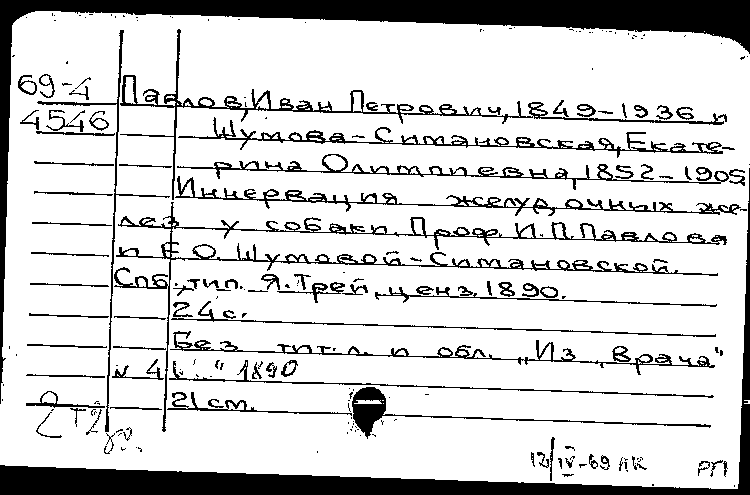 69-4
4546
Павлов, Иван Петрович, 1849-1936 и
Шумова-Симановская, Екате-
рина Олимпиевна, 1852-1905
Иннервация желудочных же-
лез у собаки. Проф. И.П.Павлова
и Е.О. Шумовой-Симановской.
Спб., тип. Я.Трей, ценз. 1890.
24 с.
Без тит. л. и обл. „Из „Врача"
N 41 " 1890
21 см.
12/IV-69 ЛК РП